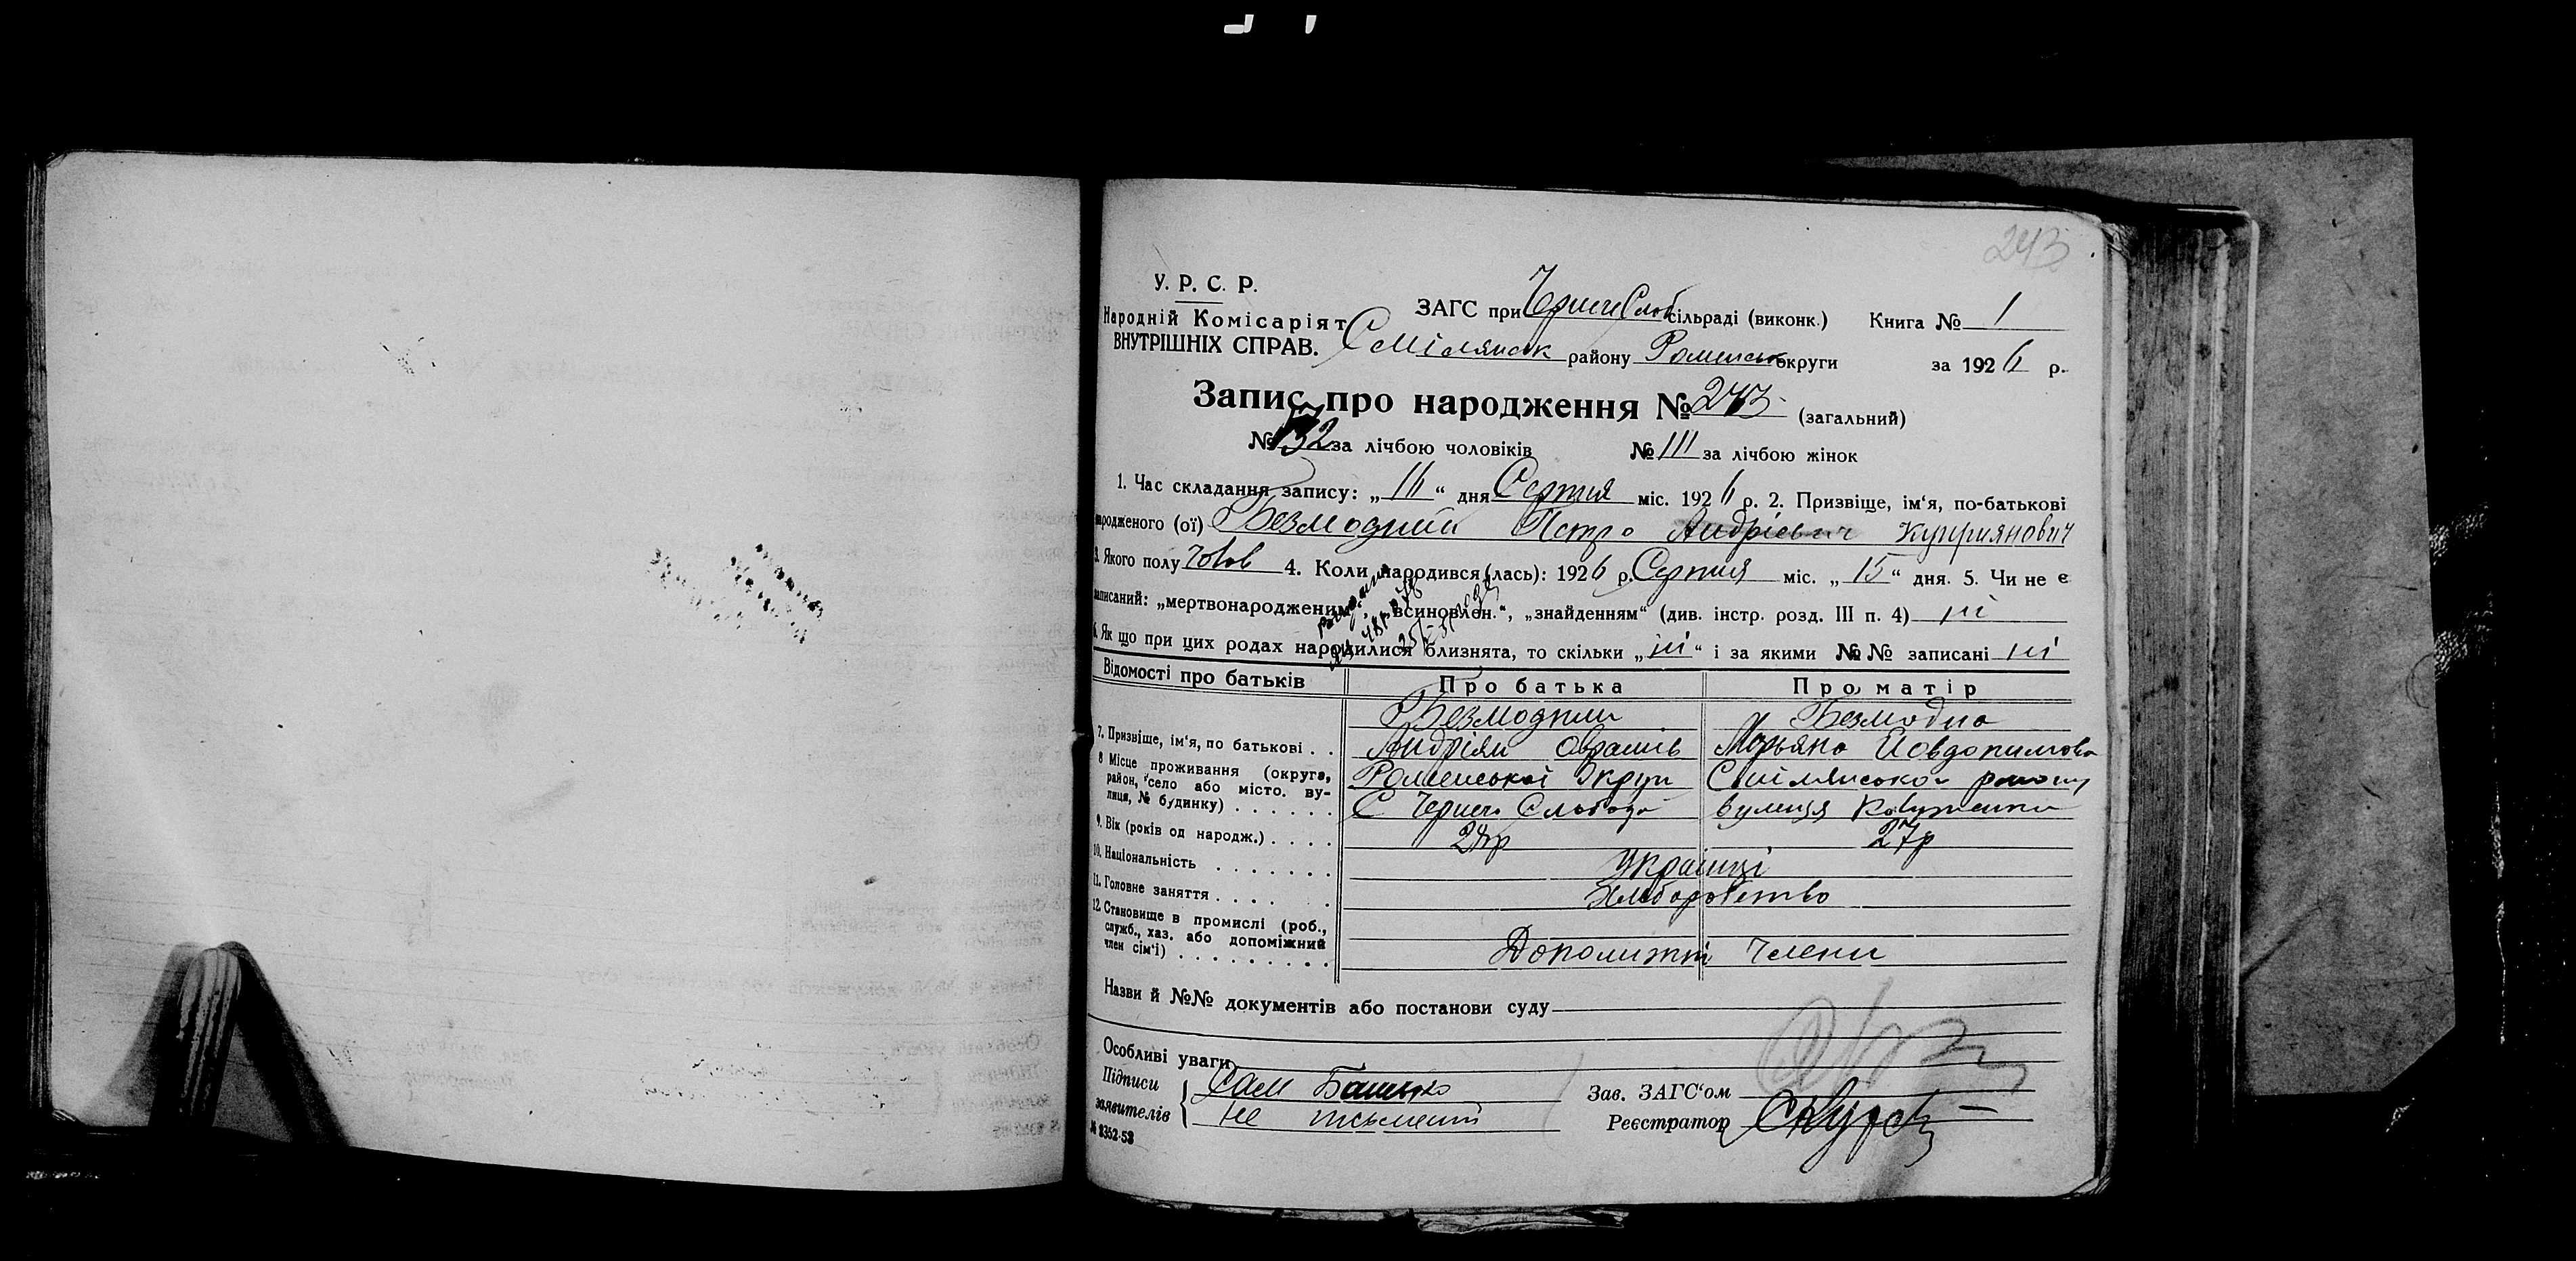 243
У. Р. С. Р.
Народній Комісаріят
ВНУТРІШНІХ СПРАВ.
ЗАГС при Черне Слоб сільраді (виконк.) Книга № 1
Смілянськ району Роменськ округи за 1926 р.
Запис про народження № 243 (загальний)
№ 132 за лічбою чоловіків № 111 за лічбою жінок
1. Час складання запису: „16“ дня Серпня міс. 1926 р. 2. Призвіще, ім‘я, по-батькові
народженого (ої) Безмодний Петро Андрієвич Куприянович
3. Якого полу Чолов 4. Коли народився (лась): 1926 р. Серпня міс. „15“ дня. 5. Чи не є
записаний: „мертвонародженим“, „всиновлен.“, „знайденням“ (див. інстр. розд. III п. 4) ні
6. Як що при цих родах народилися близнята, то скільки „ні“ і за якими №№ записані ні
Відомості про батьків Про батька Про матір
Безмодний Безмодна
7. Призвіще, ім‘я, по батькові . . Андріян Мар‘яна
8 Місце проживання (округа, район, село або місто, вулиця, № будинку) . . . . . . Роменської Округи Смілянського району
С Черне Слобода вулиця
9. Вік (років од народж.) . . . . 27р
10. Національність . . . . . . . Українці
11. Головне заняття . . . . . Хліборобство
12. Становище в промислі (роб., служб., хаз. або допоміжний член сім‘ї) . . . . . . . . . Допоміжні члени
Назви й №№ документів або постанови суду
Особливі уваги
Підписи заявителів { Сам Батько
не письменний
Зав. ЗАГС‘ом
Реєстратор
№ 8352-53